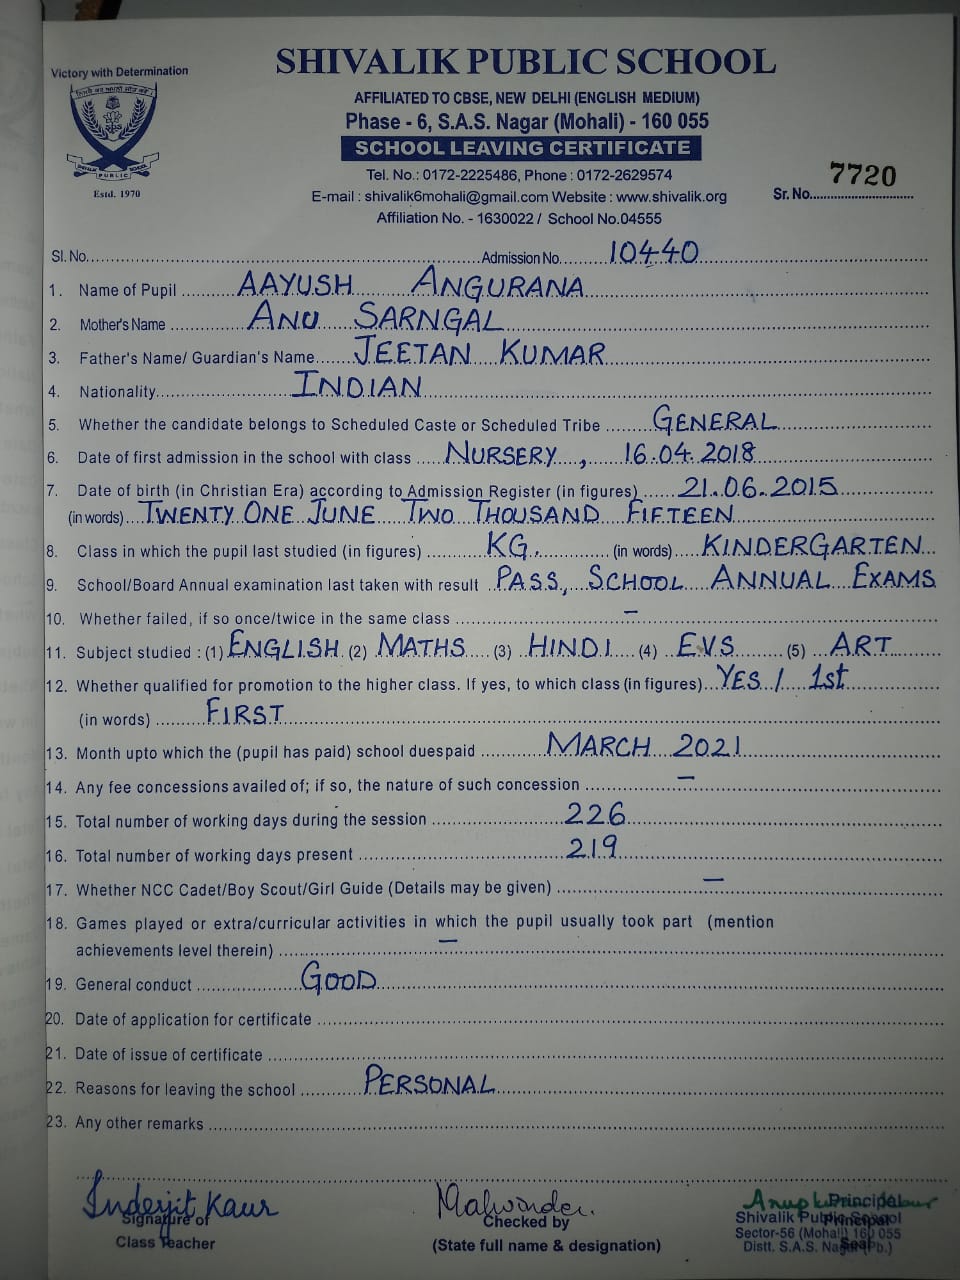 Victory with Determination
SHIVALIK PUBLIC SCHOOL
AFFILIATED TO CBSE, NEW DELHI (ENGLISH MEDIUM)
Phase - 6, S.A.S. Nagar (Mohali) - 160 055
SCHOOL LEAVING CERTIFICATE
SHIVALIK PUBLIC SCHOOL
Estd. 1970
Tel. No.: 0172-2225486, Phone : 0172-2629574
E-mail : shivalik6mohali@gmail.com Website : www.shivalik.org
Sr. No. 7720
Affiliation No. - 1630022 / School No.04555
Sl. No. Admission No. 10440
1. Name of Pupil AAYUSH ANGURANA
2. Mother's Name ANU SARNGAL
3. Father's Name/ Guardian's Name JEETAN KUMAR
4. Nationality INDIAN
5. Whether the candidate belongs to Scheduled Caste or Scheduled Tribe GENERAL
6. Date of first admission in the school with class NURSERY, 16.04.2018
7. Date of birth (in Christian Era) according to Admission Register (in figures) 21.06.2015
(in words) TWENTY ONE JUNE TWO THOUSAND FIFTEEN
8. Class in which the pupil last studied (in figures) KG. (in words) KINDERGARTEN
9. School/Board Annual examination last taken with result PASS, SCHOOL ANNUAL EXAMS
10. Whether failed, if so once/twice in the same class –
11. Subject studied : (1) ENGLISH (2) MATHS (3) HINDI (4) EVS (5) ART
12. Whether qualified for promotion to the higher class. If yes, to which class (in figures) YES / 1st
(in words) FIRST
13. Month upto which the (pupil has paid) school duespaid MARCH 2021
14. Any fee concessions availed of; if so, the nature of such concession –
15. Total number of working days during the session 226
16. Total number of working days present 219
17. Whether NCC Cadet/Boy Scout/Girl Guide (Details may be given) –
18. Games played or extra/curricular activities in which the pupil usually took part (mention
achievements level therein) –
19. General conduct GOOD
20. Date of application for certificate
21. Date of issue of certificate
22. Reasons for leaving the school PERSONAL
23. Any other remarks
Inderjit Kaur Malwinder Anup
Signature of Checked by Principal
Class Teacher (State full name & designation) Seal
Principal
Shivalik Public School
Sector-56 (Mohali) 160 055
Distt. S.A.S. Nagar (Pb.)